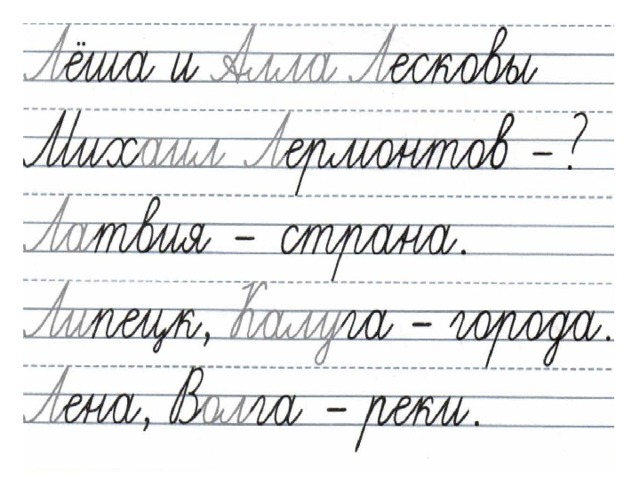 Лёша и Алла Лесковы
Михаил Лермонтов – ?
Латвия – страна.
Липецк, Калуга – города.
Лена, Волга – реки.